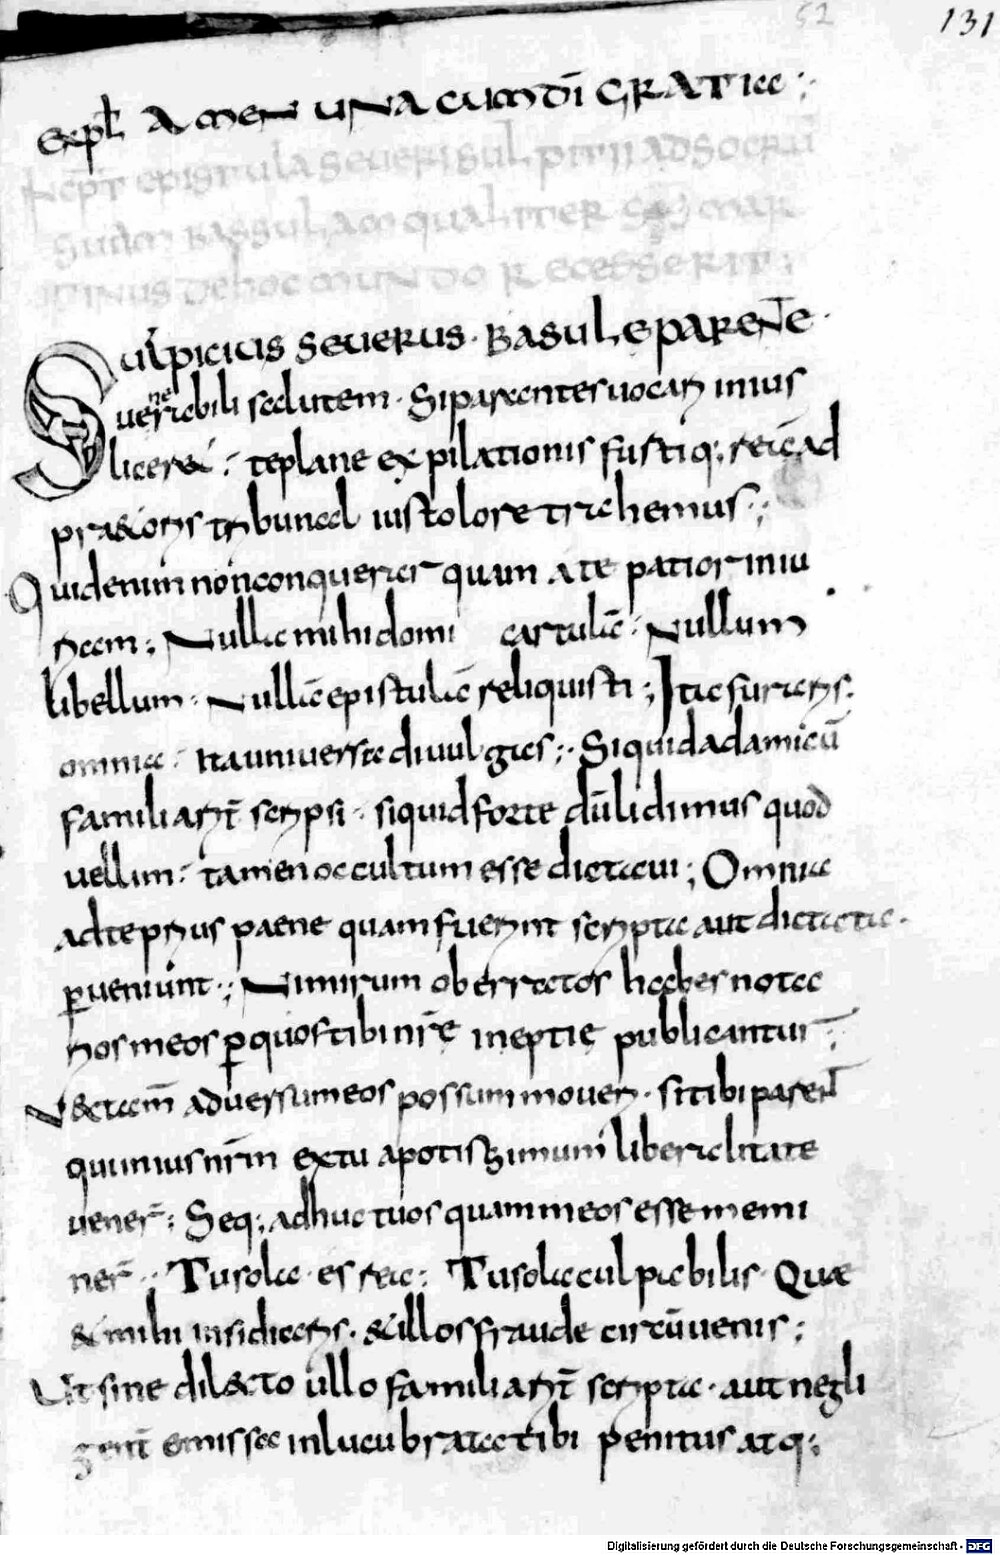 52 131
expł AMEN UNA CUM DĪ GRATIA :,
INCPT EPISTULA SEUERI SULPITII AD SOCRŪ
SUAM BASSULAM QUALITER SCS MAR
TINUS DE HOC MUNDO RECESSERIT ;
Sulpicius Seuerus · Basule parentē
uenerabili salutem · Si parentes uocari in ius
liceret : te plane expilationis furtiq; reā ad
praetoris tribunal iusto lore traheremus ·;
Quidenim nonconquerar quam a te patior iniu
riam ; Nullā mihi domi cartulā : Nullum
libellum · Nullā epistulā reliquisti ; Ita furaris
omnia : Ita uniuersa diuulgas ; · Siquid ad amicū
familiarit̄ scripsi · siquid forte dūludimus quod
uellim : tamen occultum esse dictaui ; Omnia
ad te prius paene quam fuerint scripta aut dictata ·
ꝑueniunt · ; Nimirum oberratos habes nota
rios meos ꝑ quos tibi nr̄e ineptię publicantur ;
Nec tam̄ aduersum eos possum moueri · si tibi parent
qui in ius nr̄m ex tua potissimum liberalitate
uener̄ ; Seq; adhuc tuos quam meos esse memi
ner̄ · ; Tu sola · es rea : Tu sola culpabilis · Quæ
& mihi insidiaris · & illos fraude circūuenis ;
Ut sine dilecto ullo familiarit̄ scripta · aut negli
gent̄ emissa inlucubrata tibi penitus atq;
Digitalisierung gefördert durch die Deutsche Forschungsgemeinschaft - DFG